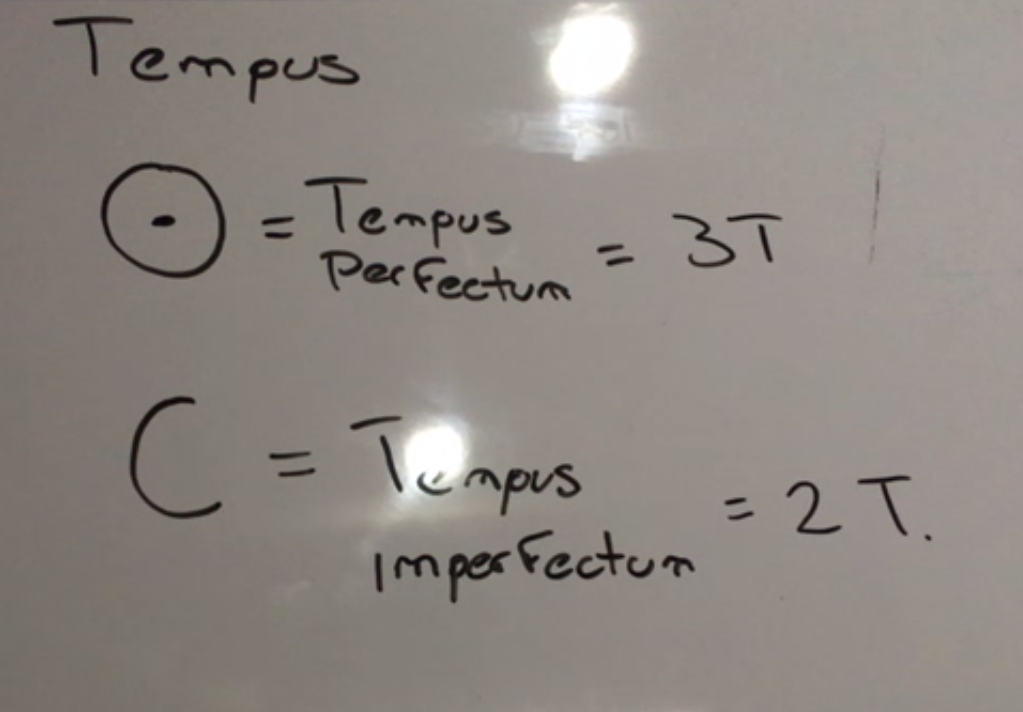 Tempus
⊙ = Tempus
Perfectum = 3T
C = Tempus
imperfectum = 2 T.